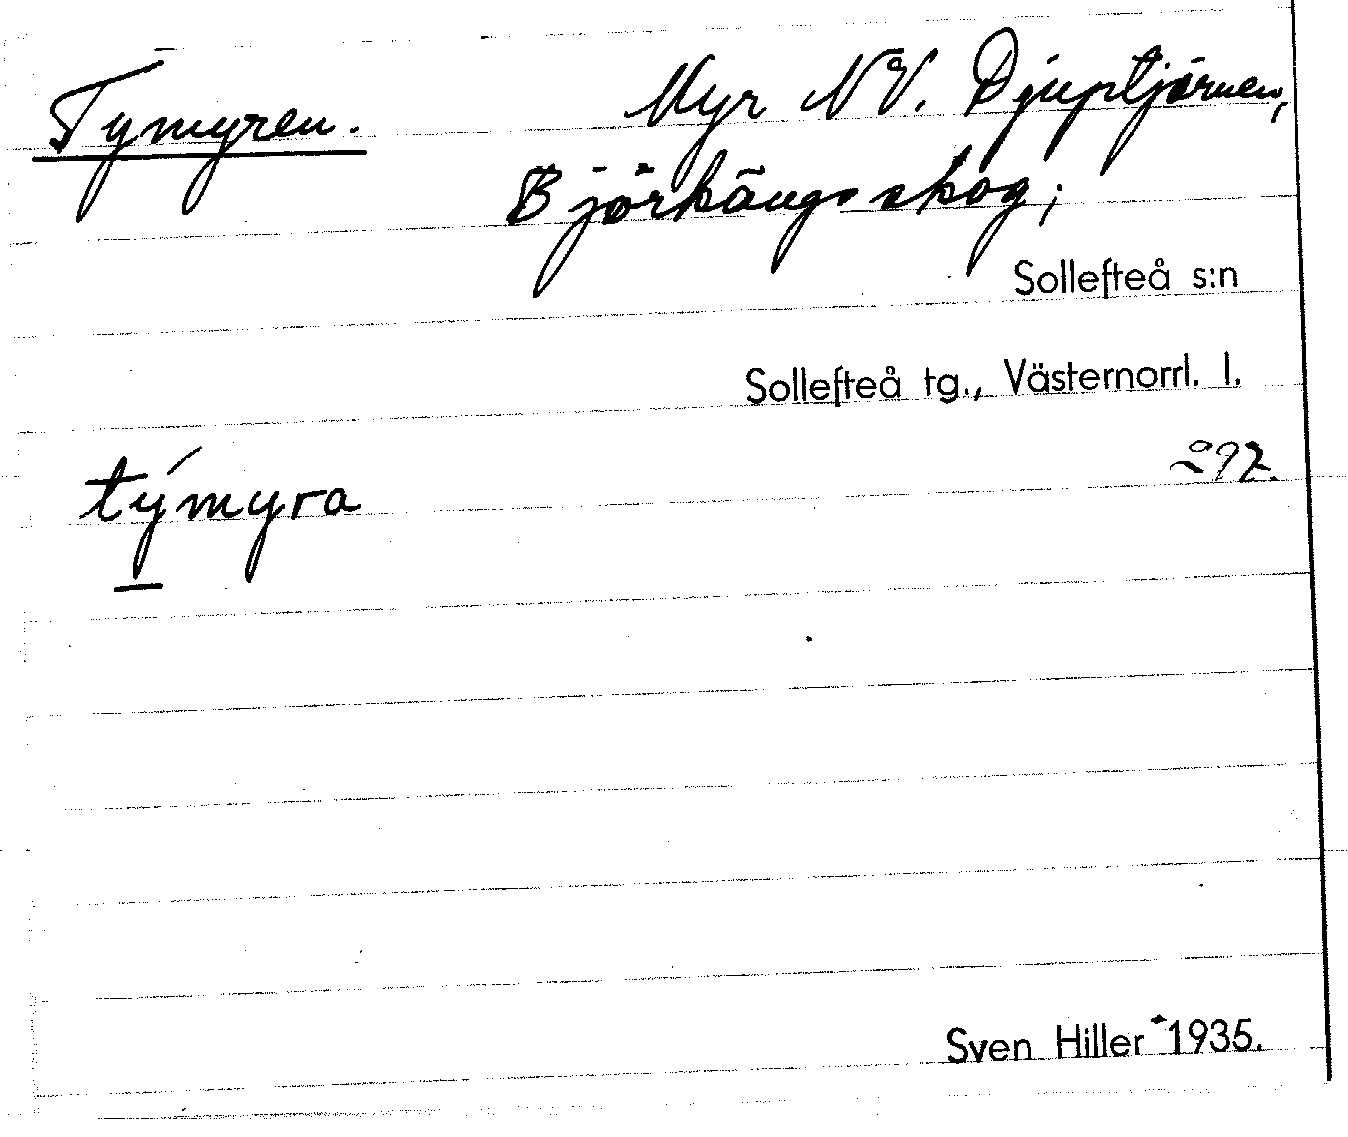 Tymyren. Myr NV. Djuptjärnen,
Björkängsskog;
Sollefteå s:n
Sollefteå tg., Västernorrl. l.
297.
týmyra
Sven Hiller 1935.